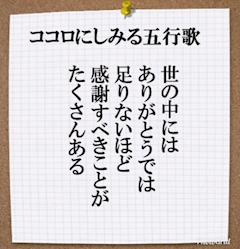 ココロにしみる五行歌
世の中には
ありがとうでは
足りないほど
感謝すべきことが
たくさんある